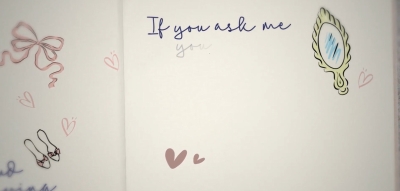 If you ask me
you